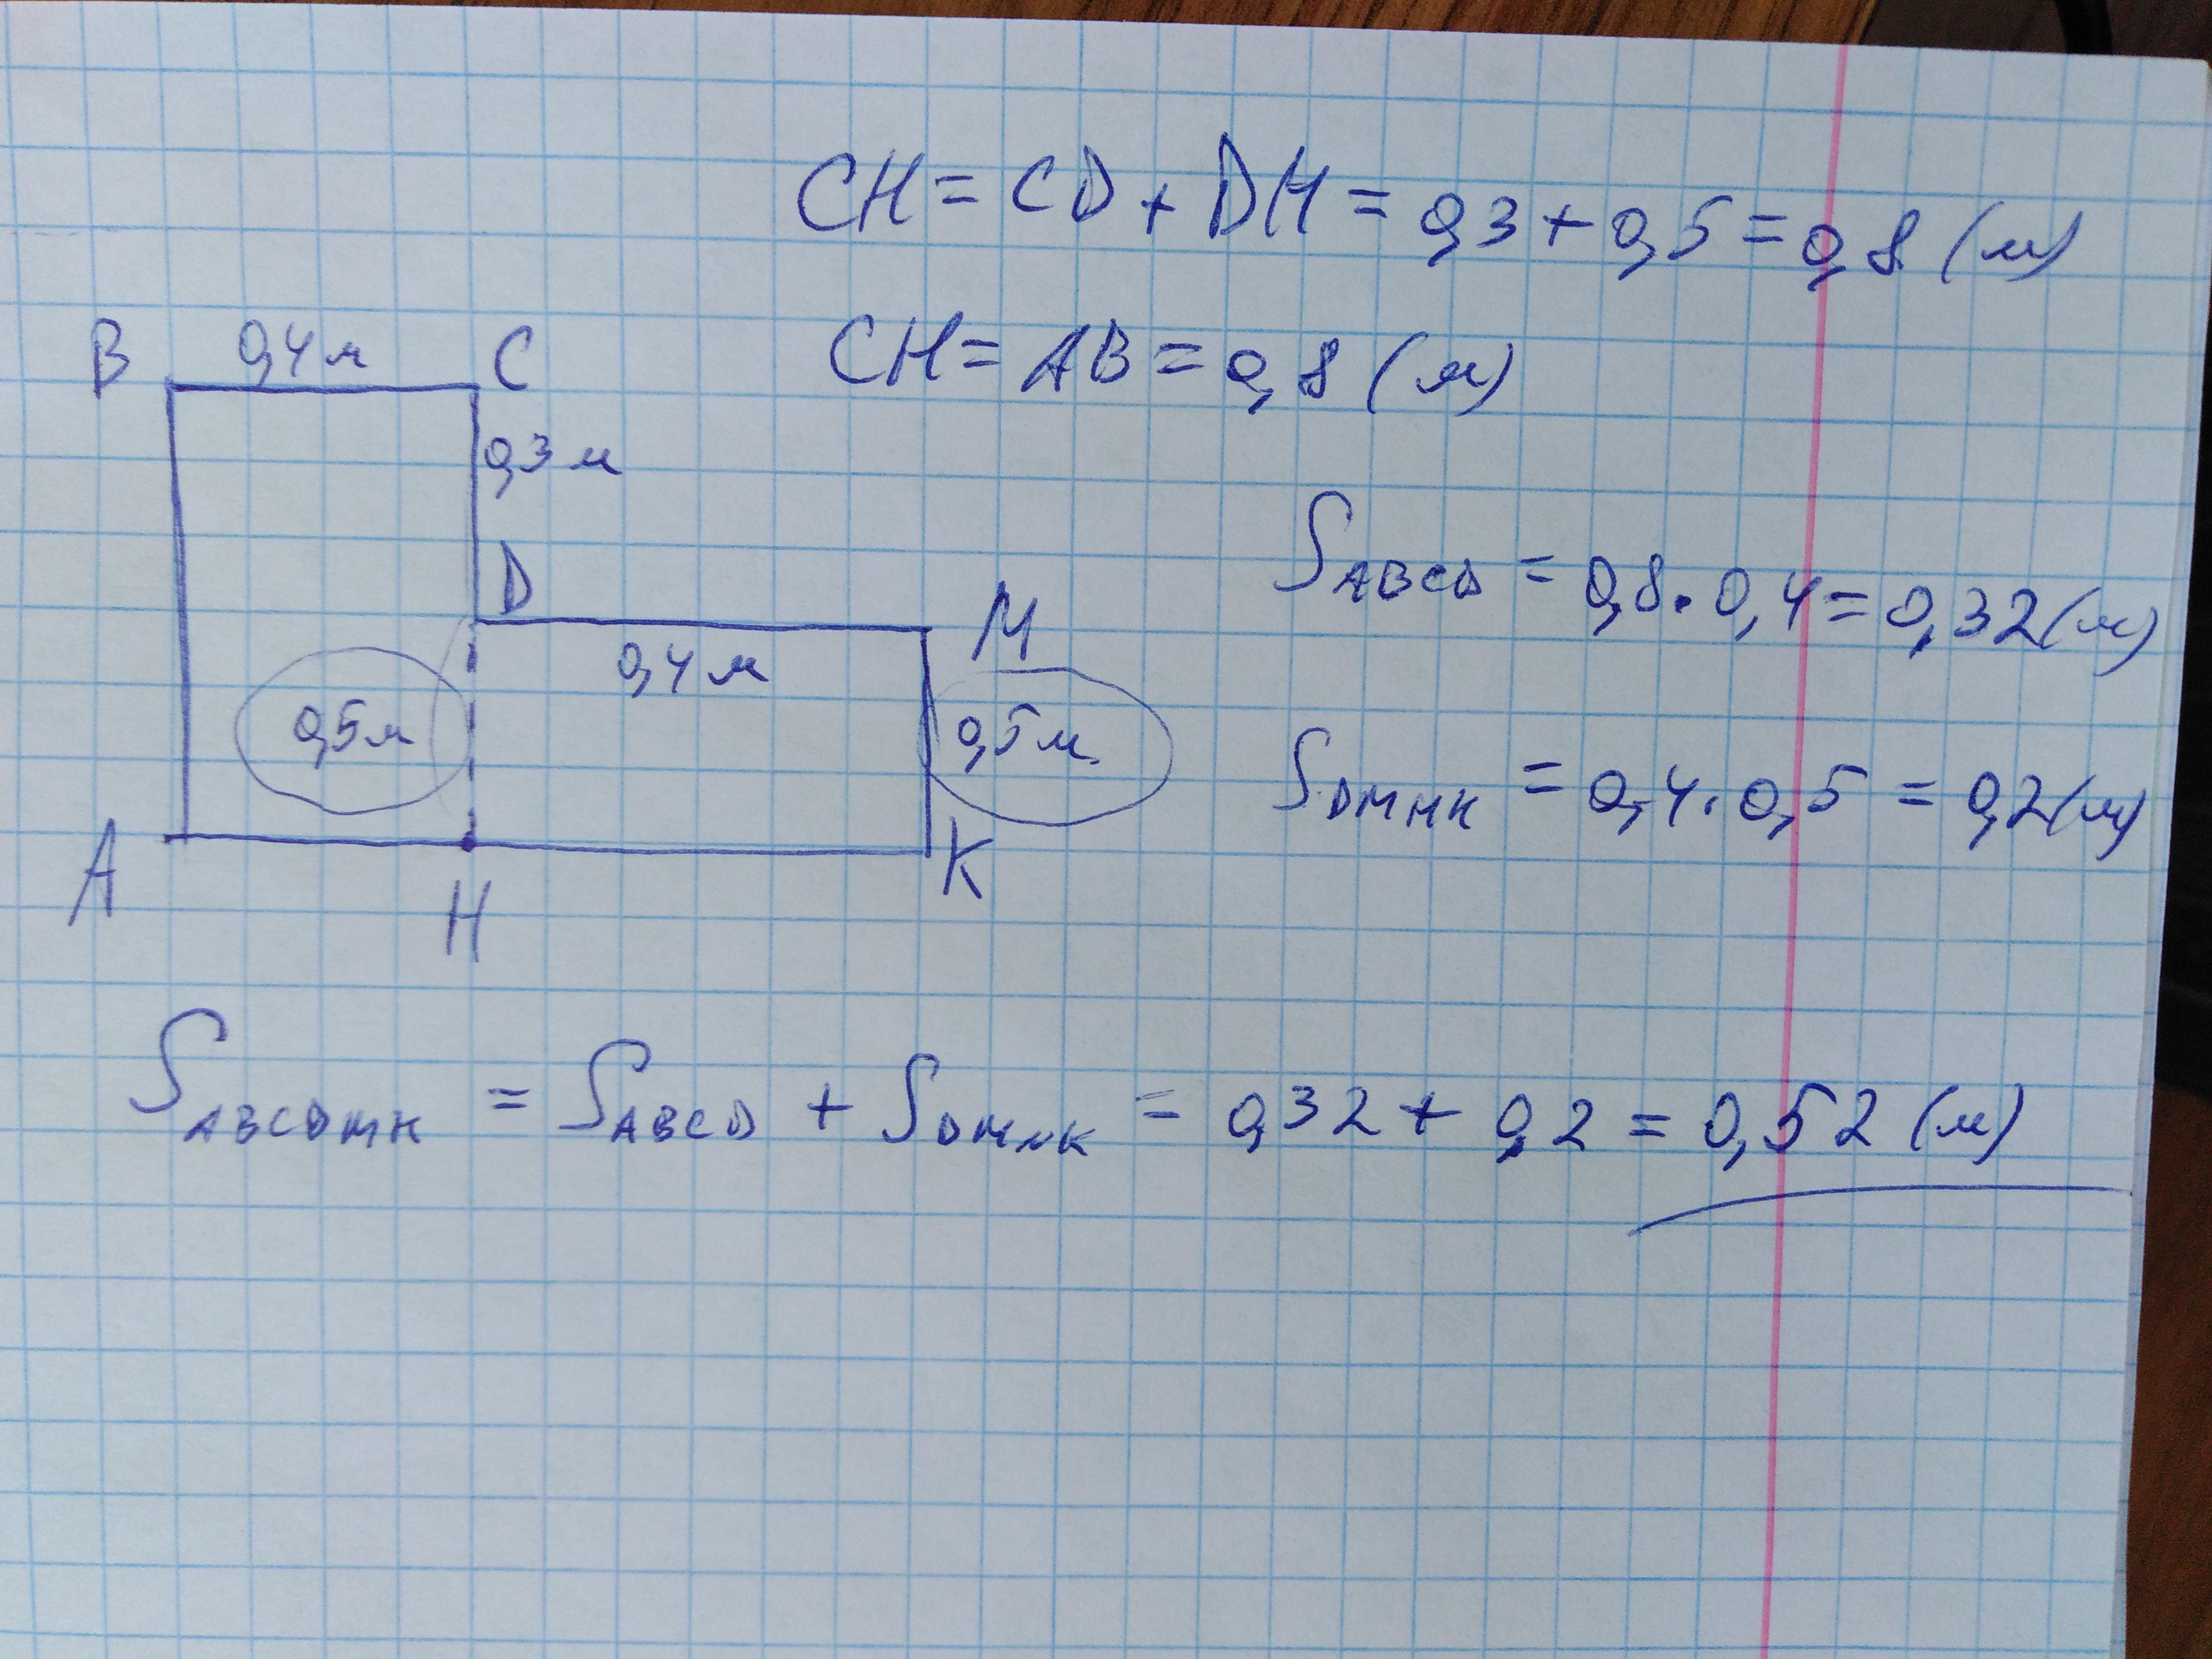 CH = CD + DH = 0,3 + 0,5 = 0,8 (м)
CH = AB = 0,8 (м)
B 0,4 м C
0,3 м
D
M
0,4 м
0,5 м
0,5 м
A
H
K
S ABCD = 0,8 · 0,4 = 0,32 (м)
S DMHK = 0,4 · 0,5 = 0,2 (м)
S ABCDMK = S ABCD + S DMHK = 0,32 + 0,2 = 0,52 (м)